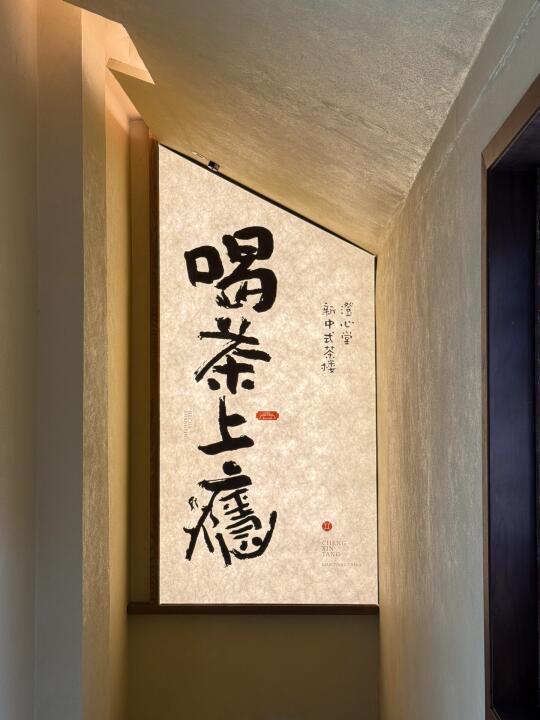 喝茶上癮
澄心堂
新中式茶楼
CHENG
XIN
TANG